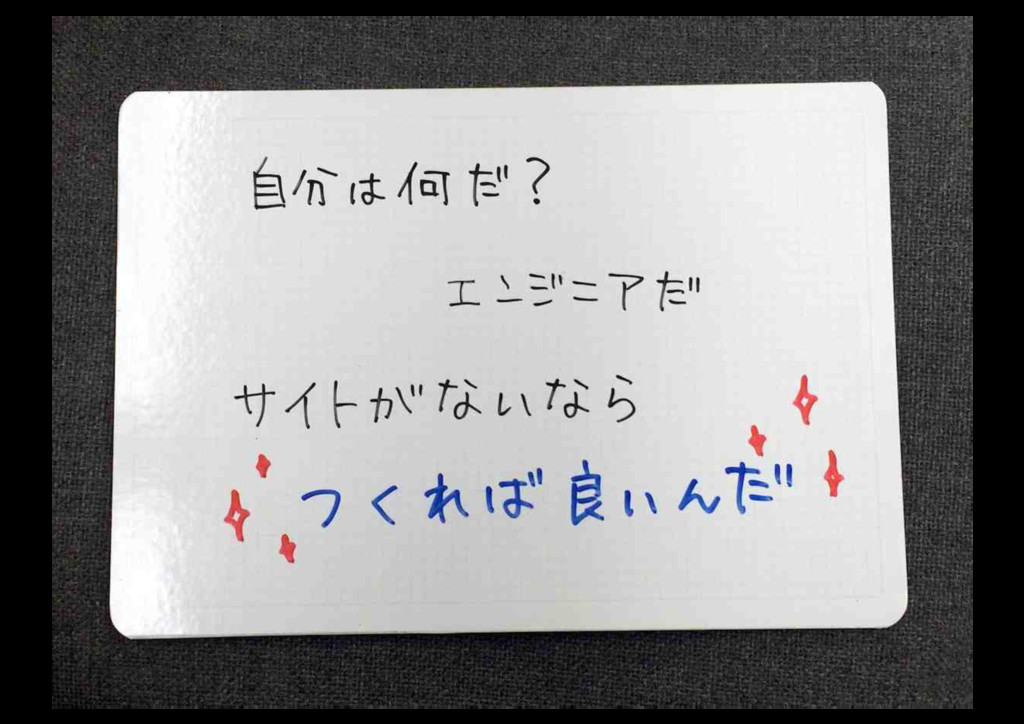 自分は何だ?
エンジニアだ
サイトがないなら
つくれば良いんだ